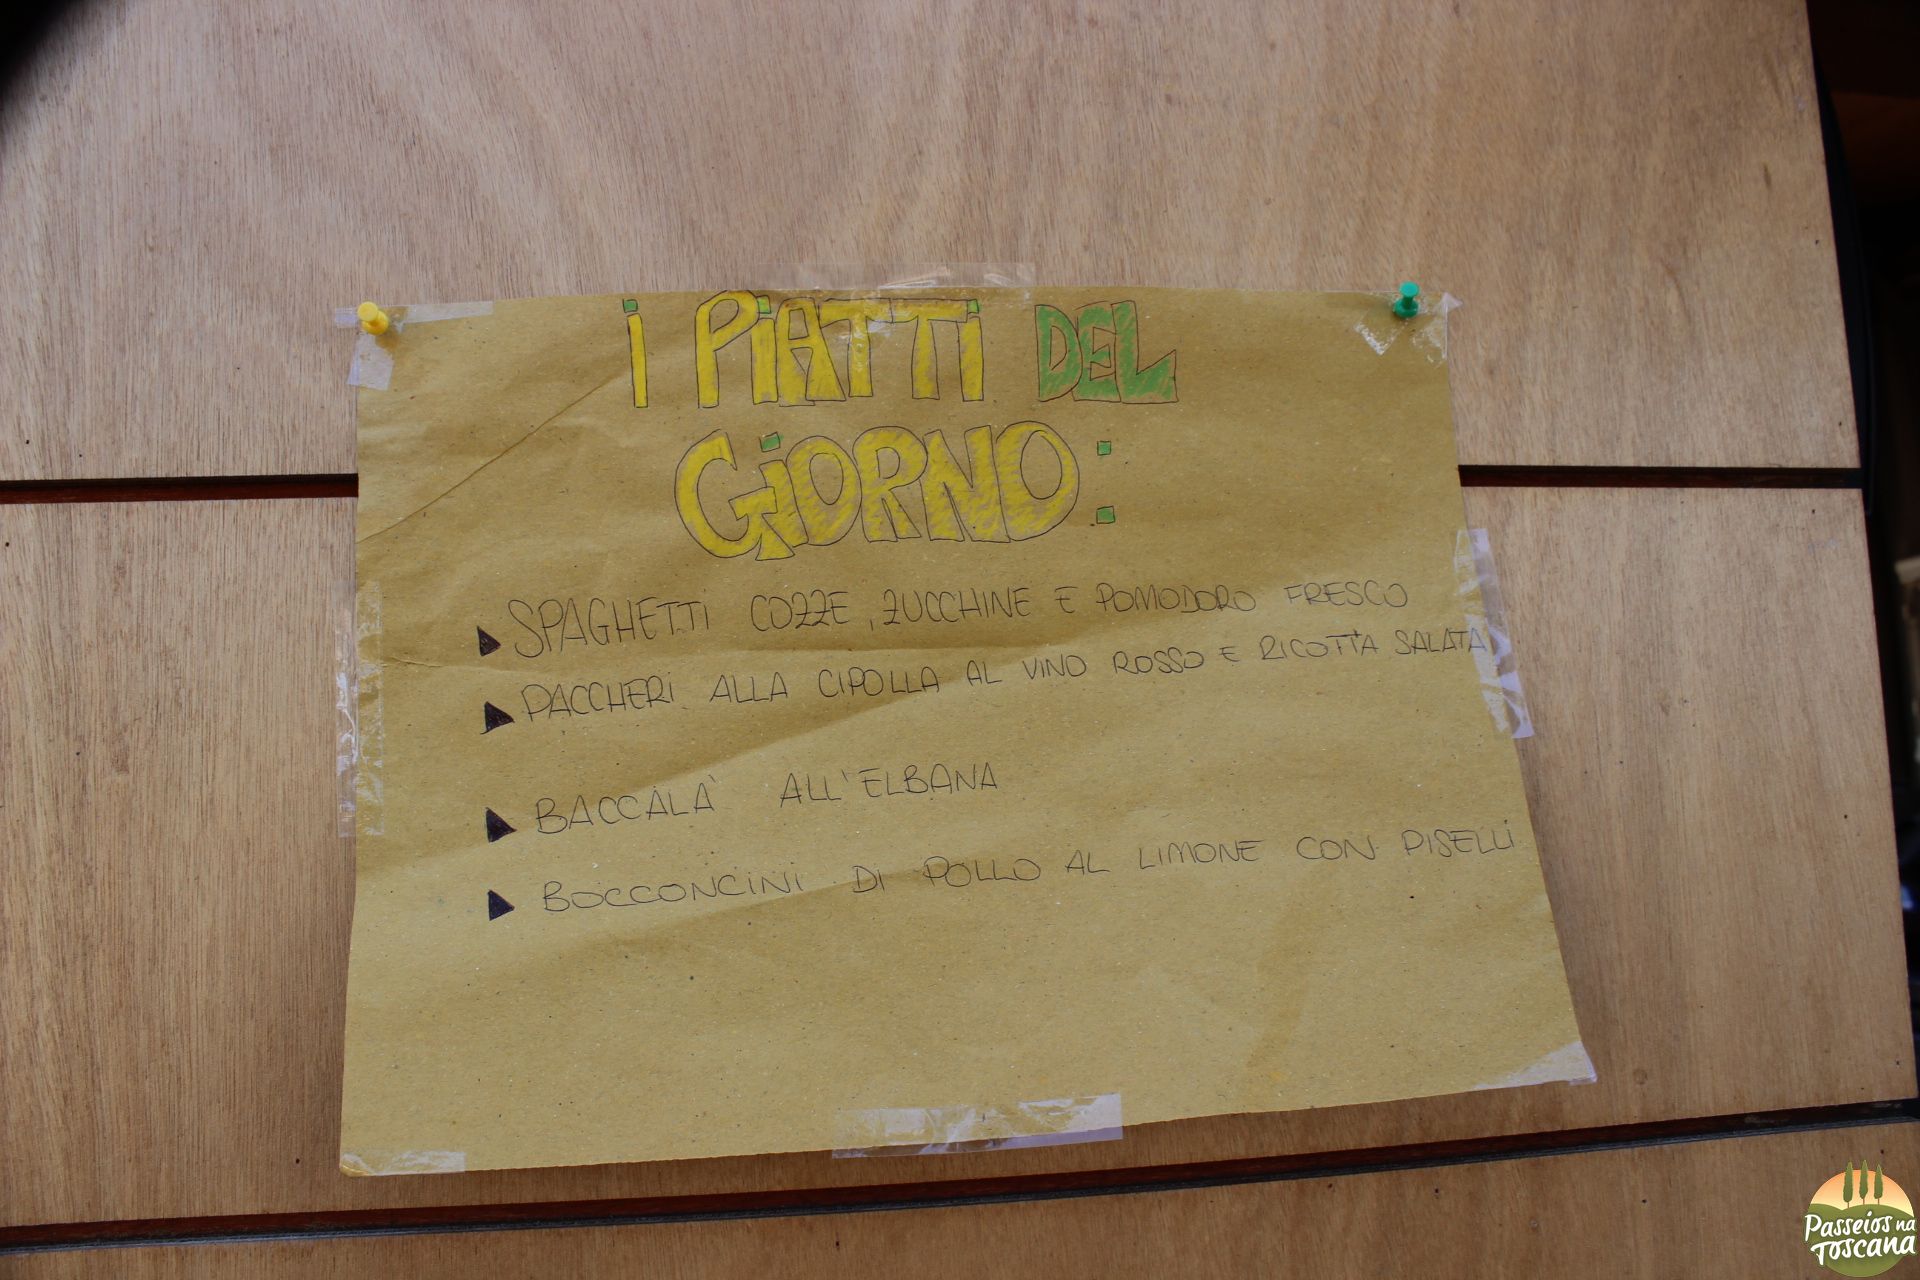 I PIATTI DEL
GIORNO:
SPAGHETTI COZZE, ZUCCHINE E POMODORO FRESCO
PACCHERI ALLA CIPOLLA AL VINO ROSSO E RICOTTA SALATA
BACCALA' ALL'ELBANA
BOCCONCINI DI POLLO AL LIMONE CON PISELLI
Passeios na
Toscana